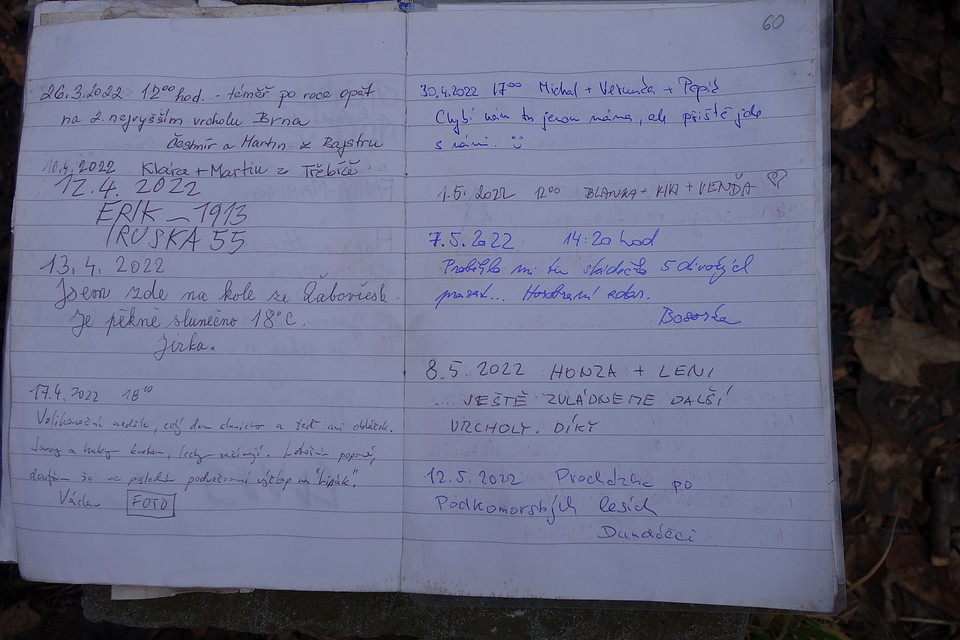 26.3.2022 12⁰⁰ hod. - téměř po roce opět
na 2. nejvyšším vrcholu Brna
Čestmír a Martin z Rajstru
10.4.2022 Klára + Martin z Třebíče
12.4. 2022
ERIK – 1913
IRUSKA 55
13.4. 2022
Jsem zde na kole ze Žabovřesk.
Je pěkně slunečno 18°C.
Jirka.
17.4.2022 18¹⁰
Velikonoční neděle, celý den slunečno a teď ani obláček.
a kvetou,
na poslední podvečerní výšlap na "Lipák".
Václav FOTO
60
30.4.2022 17⁰⁰ Michal + Verunka + Pepíč
Chybí nám tu jenom máma, ale příště jde
s námi. :)
1.5. 2022 12⁰⁰ BLANKA + KIKI + VENĎA ♡
7.5.2022 14:20 hod
Proběhlo mi tu stádečko 5 divokých
prasat...
Bosorka
8.5.2022 HONZA + LENI
... JEŠTĚ ZVLÁDNEME DALŠÍ
VRCHOLY. DÍKY
12.5.2022 Procházka po
Podkomorských lesích
Dundáčci